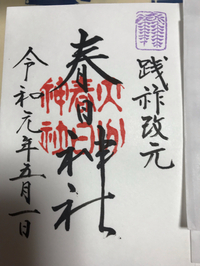 践祚改元
春日神社
令和元年五月一日